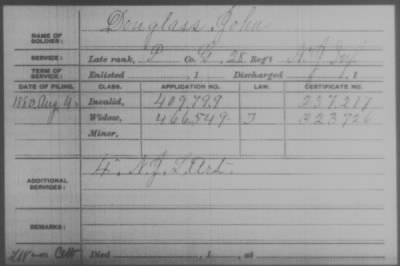 NAME OF SOLDIER: Douglass John
SERVICE: Late rank, P Co. G, 28 Reg't N.J. Inf.
TERM OF SERVICE: Enlisted , 1 Discharged , 1
DATE OF FILING. CLASS. APPLICATION NO. LAW. CERTIFICATE NO.
1880, Aug 9. Invalid, 409,799 237,217
Widow, 466,549 J 323,726
Minor,
ADDITIONAL SERVICES: 4" N.J. L. Art.
REMARKS:
Died , 1 , at